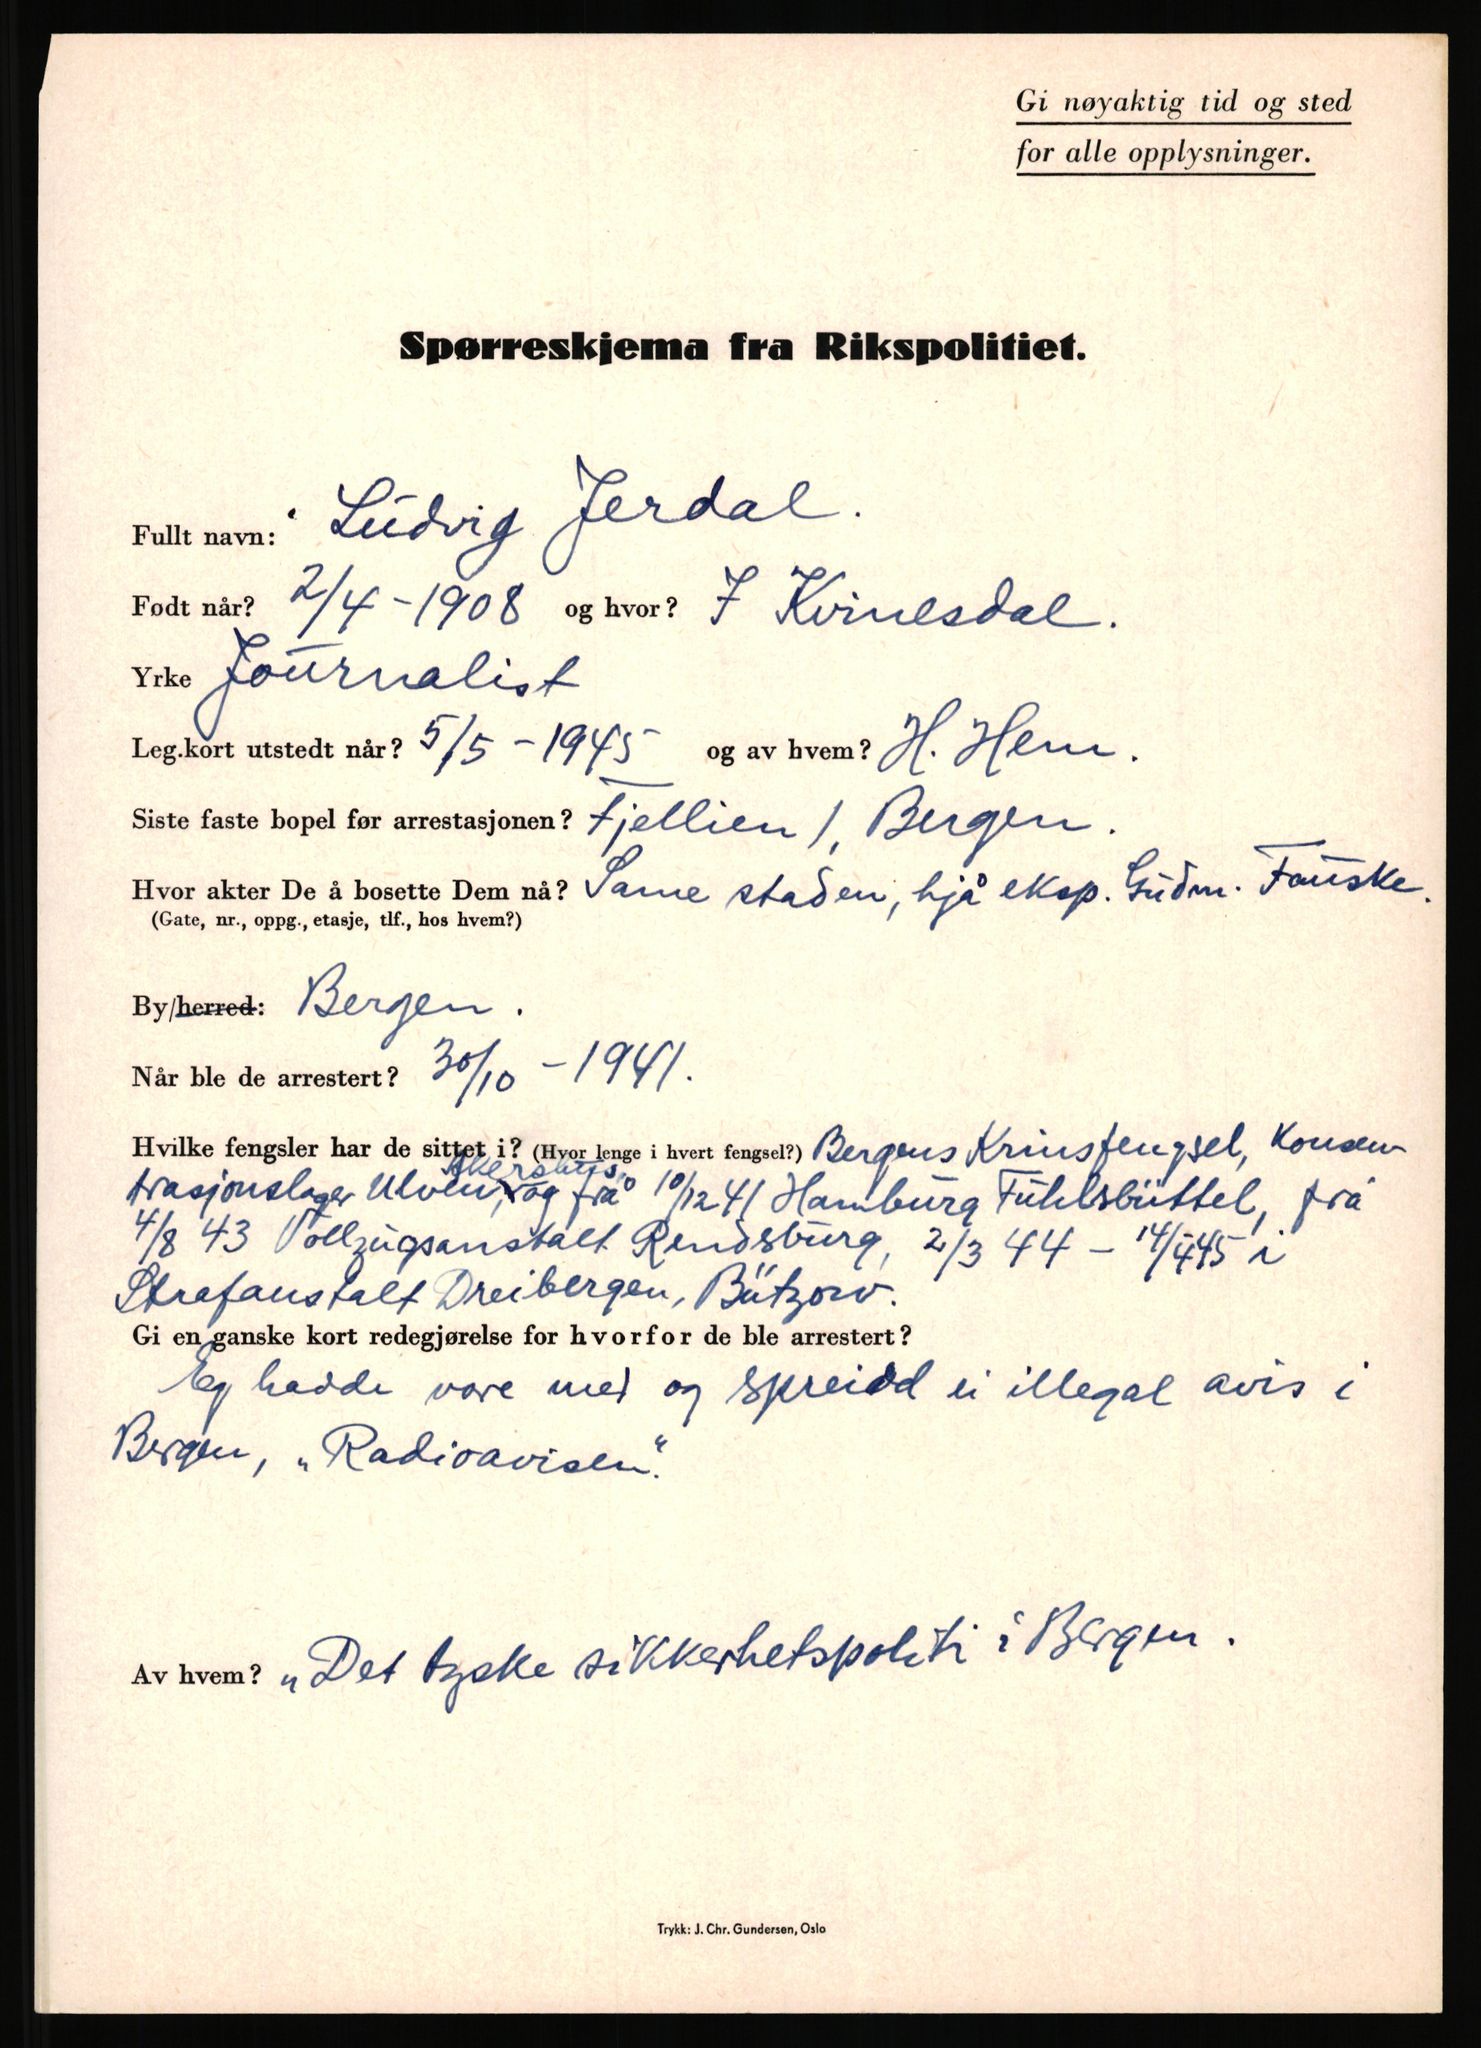 Gi nøyaktig tid og sted
for alle opplysninger.
Spørreskjema fra Rikspolitiet.
Fullt navn: Ludvig Jerdal.
Født når? 2/4 - 1908 og hvor? I Kvinesdal.
Yrke Journalist
Leg.kort utstedt når? 5/5 - 1945 og av hvem? H. Hem.
Siste faste bopel før arrestasjonen? Fjellien 1, Bergen.
Hvor akter De å bosette Dem nå? Same staden, hjå eksp. Gudm. Fauske.
(Gate, nr., oppg., etasje, tlf., hos hvem?)
By/herred: Bergen.
Når ble de arrestert? 30/10 - 1941.
Hvilke fengsler har de sittet i? (Hvor lenge i hvert fengsel?) Bergens Krinsfengsel, Konsen-
Akershus,
trasjonslager Ulven, og frå 10/12 41 Hamburg Fuhlsbüttel, frå
4/8 43 Vollzugsanstalt Rendsburg, 2/3 44 - 14/4 45 i
Strafanstalt Dreibergen, Bützow.
Gi en ganske kort redegjørelse for hvorfor de ble arrestert?
Eg hadde vore med og spreidd ei illegal avis i
Bergen, „Radioavisen“.
Av hvem? „Det tyske sikkerhetspoliti i Bergen.
Trykk: J. Chr. Gundersen, Oslo